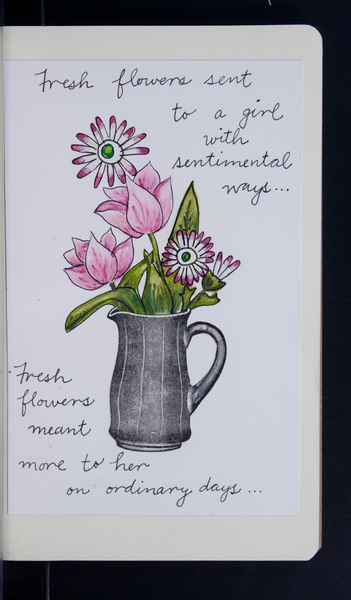 Fresh flowers sent
to a girl
with
sentimental
ways...
Fresh
flowers
meant
more to her
on ordinary days...